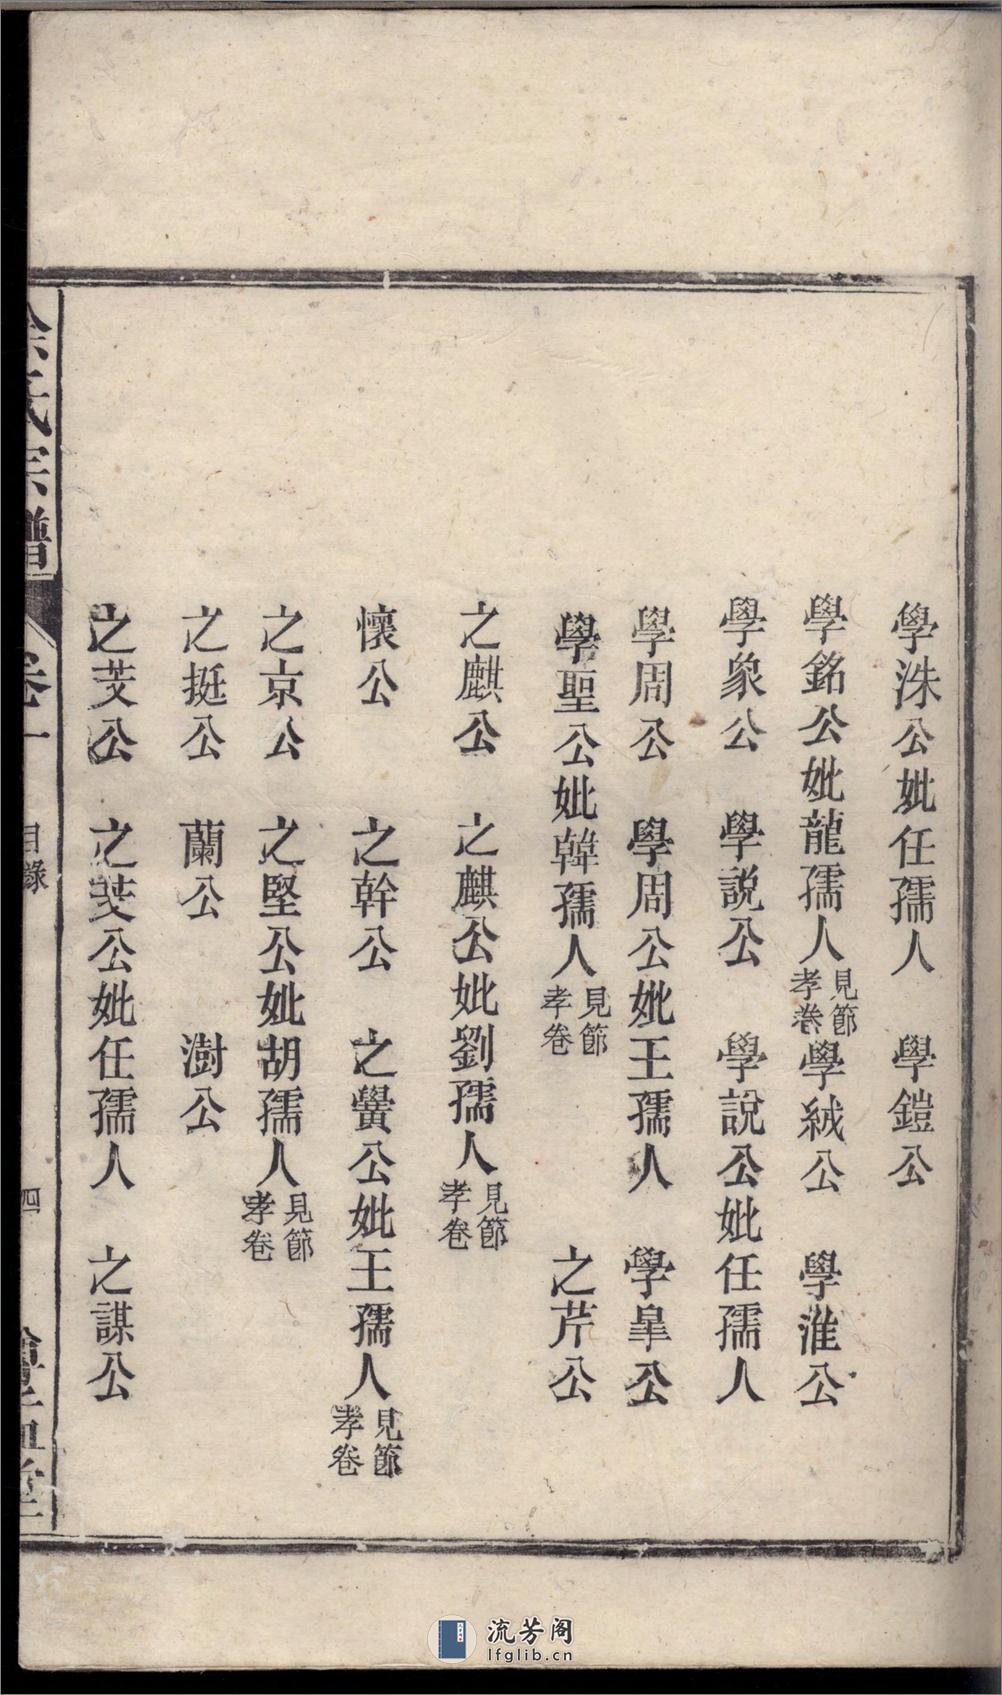 學洙公妣任孺人　學鎧公
學銘公妣龍孺人見節孝卷學絨公　學淮公
學象公　學説公　學說公妣任孺人
學周公　學周公妣王孺人　學皐公
學聖公妣韓孺人見節孝卷　之芹公
之麒公　之麒公妣劉孺人見節孝卷
懷公　之幹公　之黌公妣王孺人見節孝卷
之京公　之堅公妣胡孺人見節孝卷
之挺公　蘭公　澍公
之茭公　之茭公妣任孺人　之謀公
氏宗譜　卷一　目錄　四
流芳阁
lfglib.cn